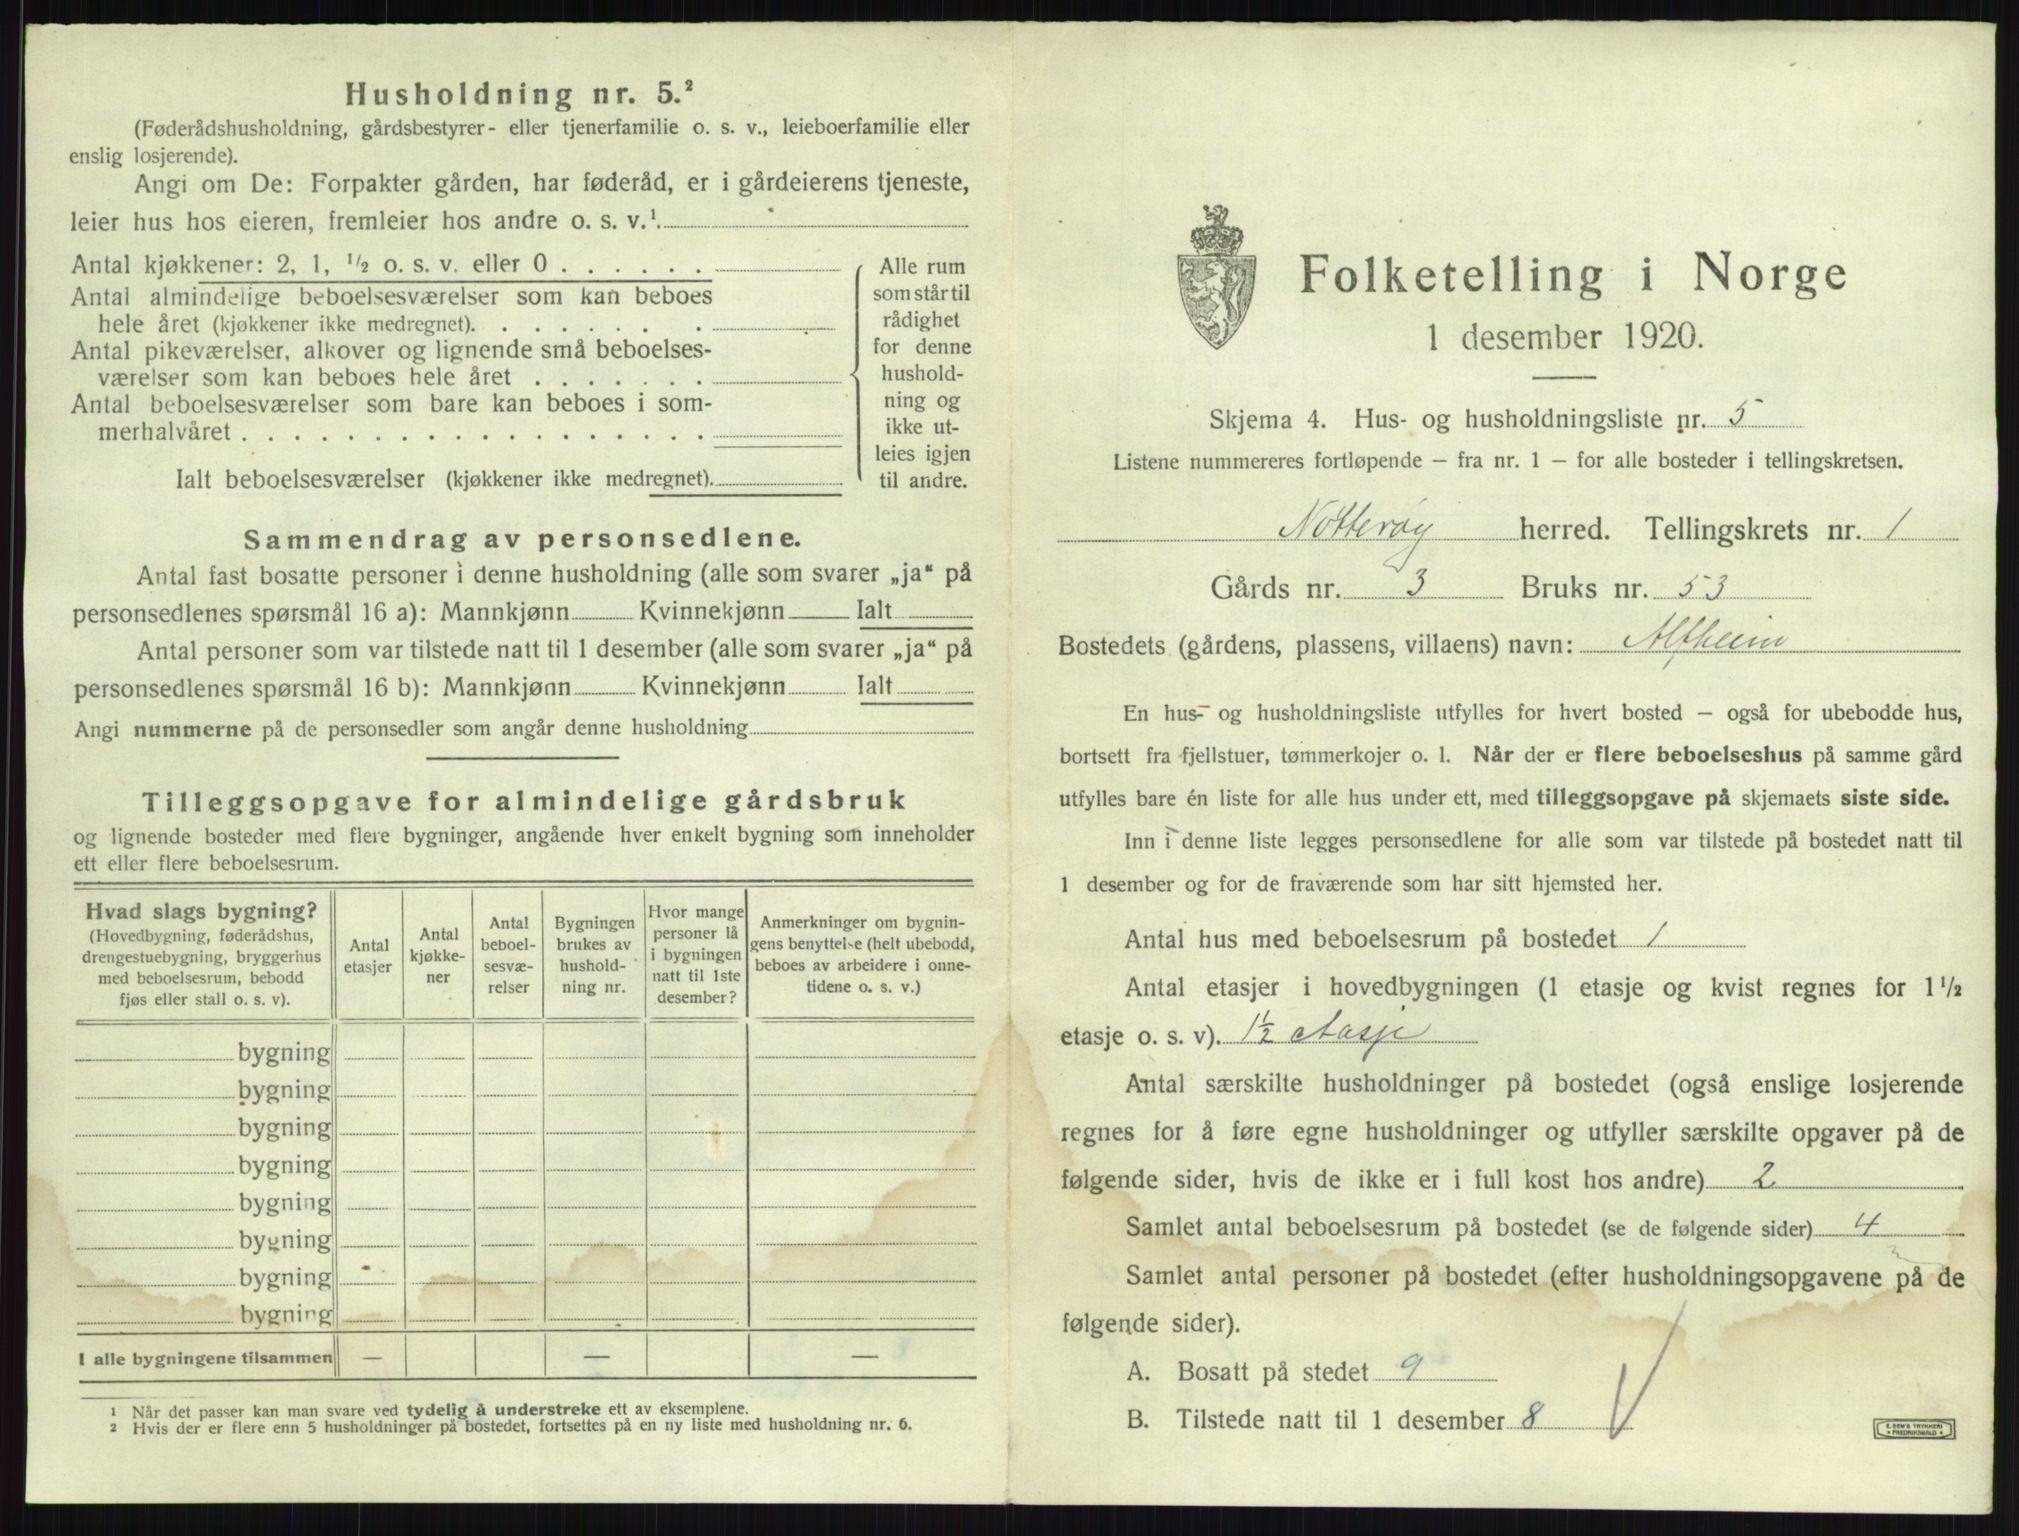 Husholdning nr. 5.²
(Føderådshusholdning, gårdsbestyrer- eller tjenerfamilie o. s. v., leieboerfamilie eller
enslig losjerende).
Angi om De: Forpakter gården, har føderåd, er i gårdeierens tjeneste,
leier hus hos eieren, fremleier hos andre o. s. v.¹.
Antal kjøkkener: 2, 1, ½ o. s. v. eller 0 . . . . . .
Antal almindelige beboelsesværelser som kan beboes
hele året (kjøkkener ikke medregnet). . . . . . . .
Antal pikeværelser, alkover og lignende små beboelses-
værelser som kan beboes hele året . . . . . . .
Antal beboelsesværelser som bare kan beboes i som-
merhalvåret . . . . . . . . . . . . . . . . . .
Ialt beboelsesværelser (kjøkkener ikke medregnet).
Alle rum
som står til
rådighet
for denne
hushold-
ning og
ikke ut-
leies igjen
til andre.
Sammendrag av personsedlene.
Antal fast bosatte personer i denne husholdning (alle som svarer „ja“ på
personsedlenes spørsmål 16 a): Mannkjønn Kvinnekjønn Ialt
Antal personer som var tilstede natt til 1 desember (alle som svarer „ja“ på
personsedlenes spørsmål 16 b): Mannkjønn Kvinnekjønn Ialt
Angi nummerne på de personsedler som angår denne husholdning
Tilleggsopgave for almindelige gårdsbruk
og lignende bosteder med flere bygninger, angående hver enkelt bygning som inneholder
ett eller flere beboelsesrum.
Hvad slags bygning?
(Hovedbygning, føderådshus,
drengestuebygning, bryggerhus
med beboelsesrum, bebodd
fjøs eller stall o. s. v).
Antal
etasjer
Antal
kjøkke-
ner
Antal
beboel-
sesvæ-
relser
Bygningen
brukes av
hushold-
ning nr.
Hvor mange
personer lå
i bygningen
natt til 1ste
desember?
Anmerkninger om bygnin-
gens benyttelse (helt ubebodd,
beboes av arbeidere i onne-
tidene o. s. v.)
bygning
bygning
bygning
bygning
bygning
bygning
bygning
bygning
I alle bygningene tilsammen — — —
¹ Når det passer kan man svare ved tydelig å understreke ett av eksemplene.
² Hvis der er flere enn 5 husholdninger på bostedet, fortsettes på en ny liste med husholdning nr. 6.
Folketelling i Norge
1 desember 1920.
Skjema 4. Hus- og husholdningsliste nr. 5
Listene nummereres fortløpende — fra nr. 1 — for alle bosteder i tellingskretsen.
Nøtterøy herred. Tellingskrets nr. 1
Gårds nr. 3 Bruks nr. 53
Bostedets (gårdens, plassens, villaens) navn: Alfheim
En hus- og husholdningsliste utfylles for hvert bosted — også for ubebodde hus,
bortsett fra fjellstuer, tømmerkojer o. l. Når der er flere beboelseshus på samme gård
utfylles bare én liste for alle hus under ett, med tilleggsopgave på skjemaets siste side.
Inn i denne liste legges personsedlene for alle som var tilstede på bostedet natt til
1 desember og for de fraværende som har sitt hjemsted her.
Antal hus med beboelsesrum på bostedet 1
Antal etasjer i hovedbygningen (1 etasje og kvist regnes for 1½
etasje o. s. v). 1½ etasje
Antal særskilte husholdninger på bostedet (også enslige losjerende
regnes for å føre egne husholdninger og utfyller særskilte opgaver på de
følgende sider, hvis de ikke er i full kost hos andre) 2
Samlet antal beboelsesrum på bostedet (se de følgende sider) 4
Samlet antal personer på bostedet (efter husholdningsopgavene på de
følgende sider).
A. Bosatt på stedet 9
B. Tilstede natt til 1 desember 8
E. SEM'S TRYKKERI
FREDRIKSHALD